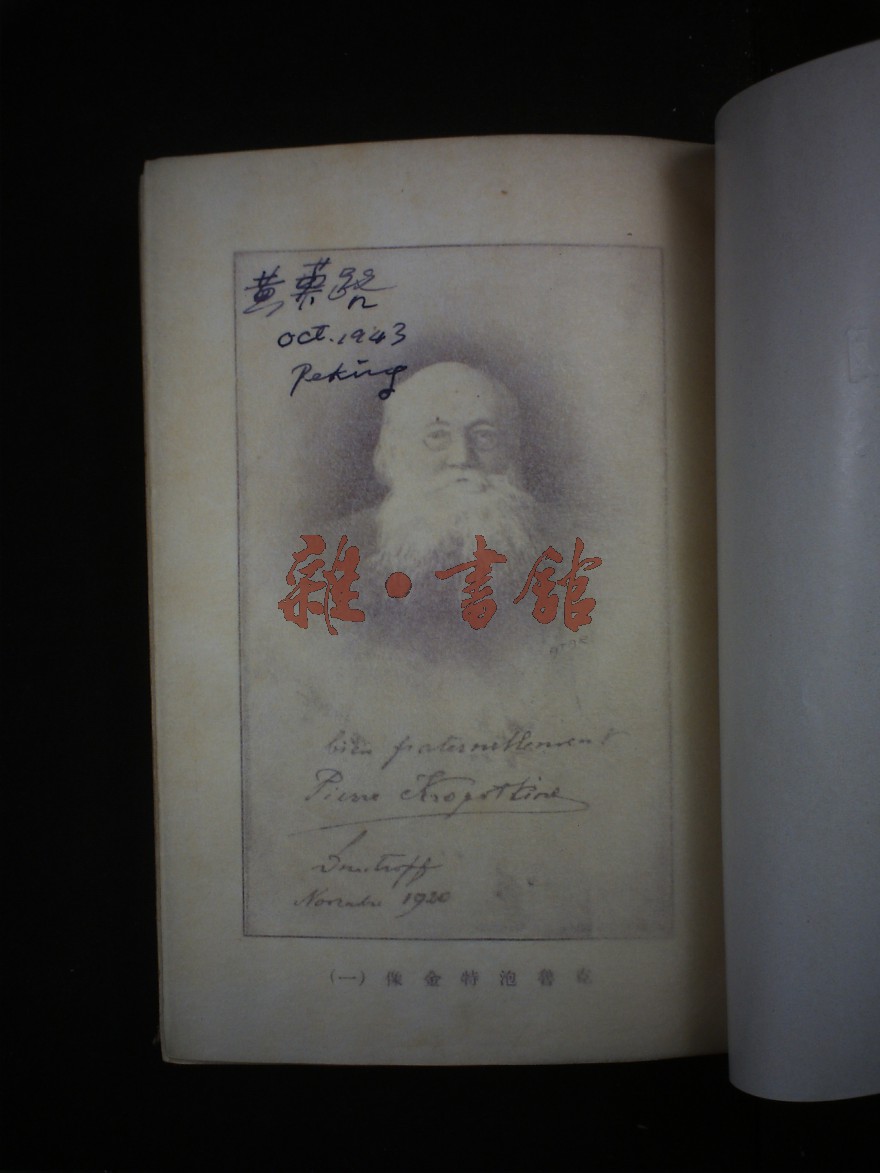 黄
Oct. 1943
Peking
雜·書館
bien fraternellement
Pierre Kropotkine
Dmitroff
Novembre 1920
克魯泡特金像（一）